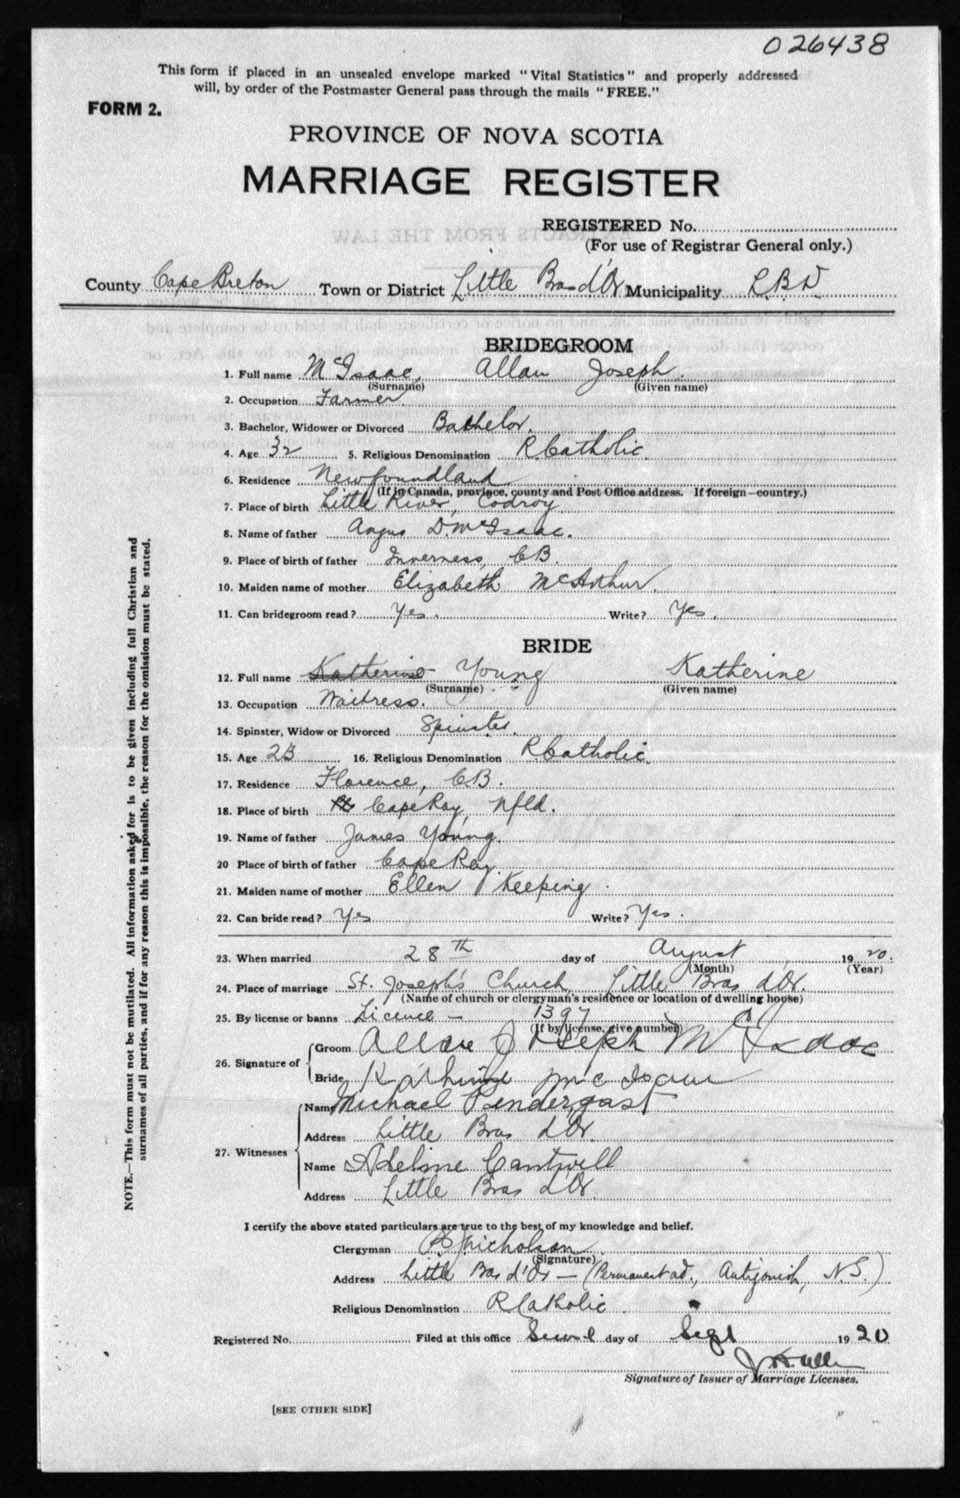 026438
This form if placed in an unsealed envelope marked "Vital Statistics" and properly addressed
will, by order of the Postmaster General pass through the mails "FREE."
FORM 2.
PROVINCE OF NOVA SCOTIA
MARRIAGE REGISTER
REGISTERED No.
(For use of Registrar General only.)
County Cape Breton Town or District Little Bras d'Or Municipality L.B.D
BRIDEGROOM
1. Full name McIsaac, Allan Joseph.
(Surname) (Given name)
2. Occupation Farmer
3. Bachelor, Widower or Divorced Bachelor.
4. Age 32 5. Religious Denomination R Catholic.
6. Residence Newfoundland
(If in Canada, province, county and Post Office address. If foreign—country.)
7. Place of birth Little River, Codroy
8. Name of father Angus D. McIsaac.
9. Place of birth of father Inverness, CB.
10. Maiden name of mother Elizabeth McArthur.
11. Can bridegroom read? Yes. Write? Yes.
BRIDE
12. Full name Katherine Young Katherine
(Surname) (Given name)
13. Occupation Waitress.
14. Spinster, Widow or Divorced Spinster.
15. Age 16. Religious Denomination R Catholic.
17. Residence Florence, CB.
18. Place of birth Cape Ray, Nfld.
19. Name of father James Young.
20 Place of birth of father Cape Ray.
21. Maiden name of mother Ellen Keeping.
22. Can bride read? Yes Write? Yes.
23. When married 28th day of August 1920.
(Month) (Year)
24. Place of marriage St. Joseph's Church, Little Bras d'Or.
(Name of church or clergyman's residence or location of dwelling house)
25. By license or banns Licence — 1397
(If by license, give number)
26. Signature of Groom Allan Joseph McIsaac
Bride Katherine McIsaac
27. Witnesses Name Michael Pendergast
Address Little Bras d'Or.
Name Adeline Cantwell
Address Little Bras d'Or.
I certify the above stated particulars are true to the best of my knowledge and belief.
Clergyman Nicholson
(Signature)
Address Little Bras d'Or — (Permanent ad., Antigonish, N.S.)
Religious Denomination R Catholic
Registered No. Filed at this office Second day of Sept 1920
Signature of Issuer of Marriage Licenses.
[SEE OTHER SIDE]
NOTE.—This form must not be mutilated. All information asked for is to be given including full Christian and
surnames of all parties, and if for any reason this is impossible, the reason for the omission must be stated.